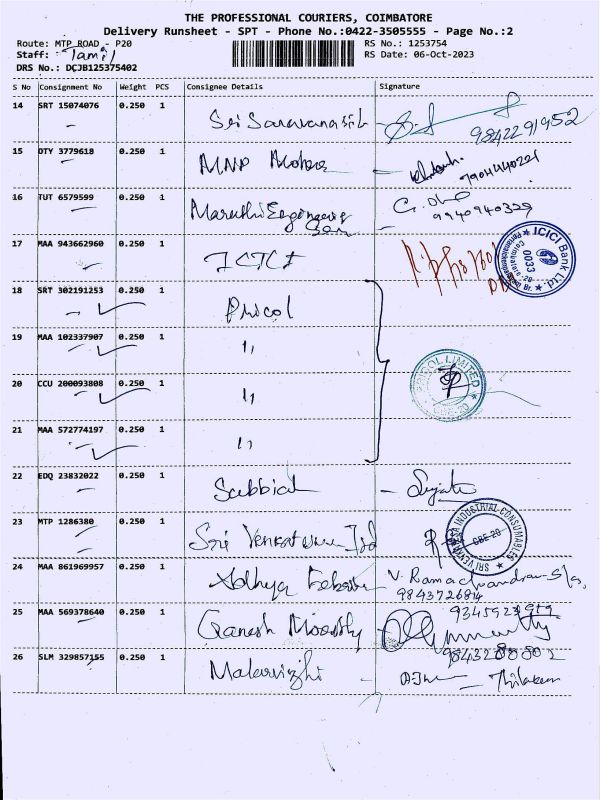 THE PROFESSIONAL COURIERS, COIMBATORE
Delivery Runsheet - SPT - Phone No.:0422-3505555 - Page No.:2
Route: MTP ROAD - P20
RS No.: 1253754
Staff: Tamil
RS Date: 06-Oct-2023
DRS No.: DCJB125375402
S No Consignment No Weight PCS Consignee Details Signature
14 SRT 15074076 0.250 1 Sri Saravana
9842291952
15 DTY 3779618 0.250 1 MNP Motors
16 TUT 6579599 0.250 1 Maruthi Engineering
9940940329
17 MAA 943662960 0.250 1 ICICI
ICICI Bank Ltd. 0033 Coimbatore
18 SRT 302191253 0.250 1 Pricol
19 MAA 102337907 0.250 1 "
20 CCU 200093808 0.250 1 "
PRICOL LIMITED CBE-20
21 MAA 572774197 0.250 1 "
22 EDQ 23832022 0.250 1 - Sujata
23 MTP 1286380 0.250 1 Sri Venkateswara
SRI VENKATESA INDUSTRIAL CONSUMABLES CBE-20
24 MAA 861969957 0.250 1 V. Ramachandran
9843726814
25 MAA 569378640 0.250 1 Ganesh Moorthy
9843288802
26 SLM 329857155 0.250 1 Malarvizhi - Thilakam